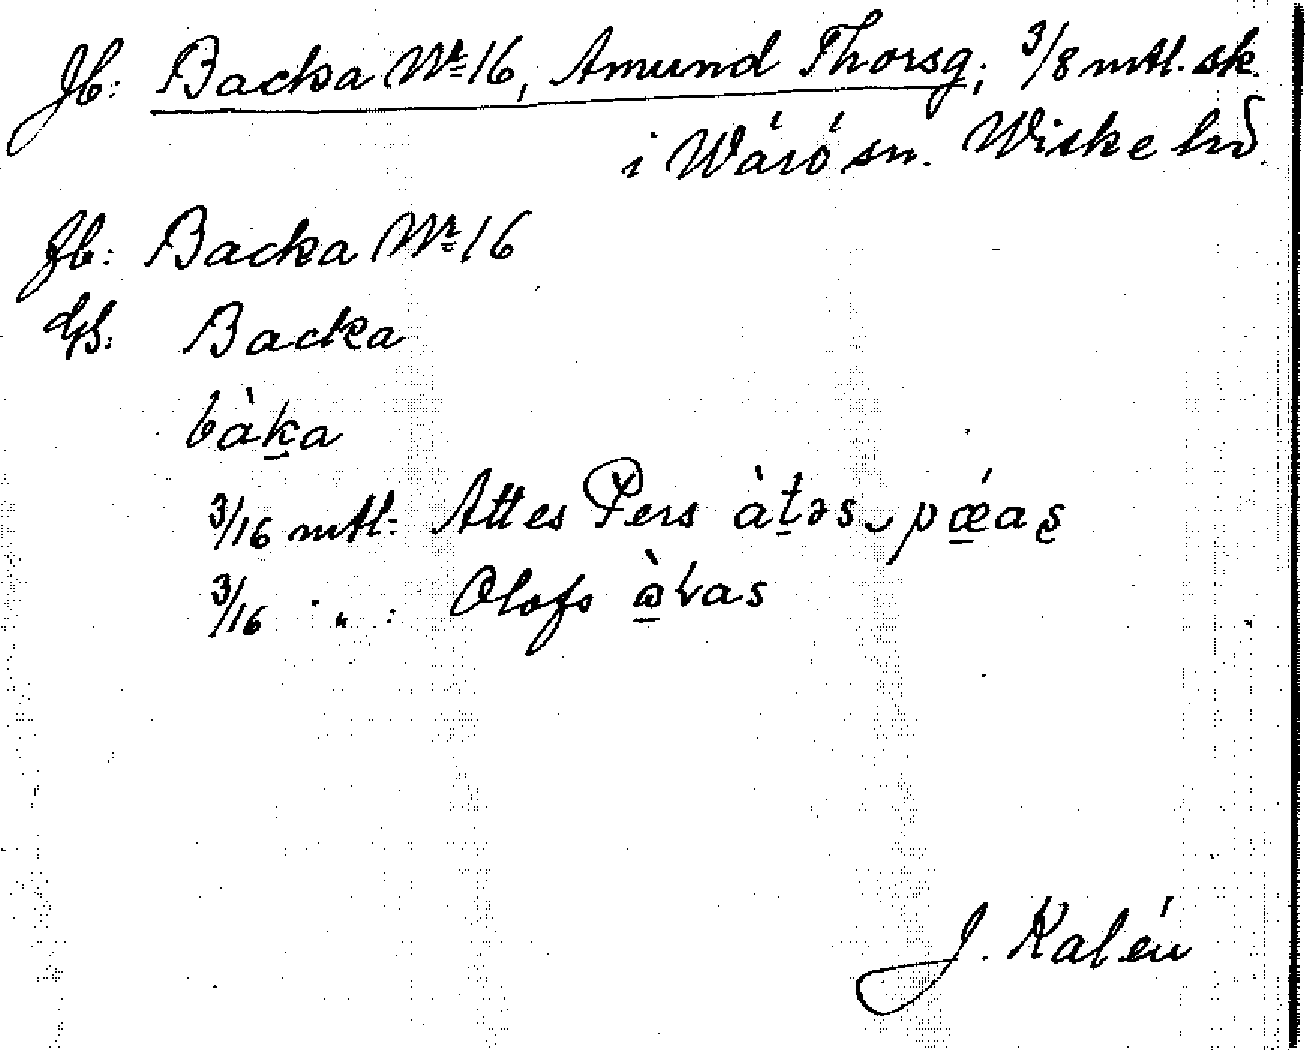 Jb: Backa Nr 16, Amund Thorsg; 3/8 mtl. sk.
i Wáró sn. Wiske hd.
Jb: Backa Nr 16
GS: Backa
bàḵa
3/16 mtl: Attes Pers àṯəs‿pǽas̨
3/16 " : Olofs
J. Kalén